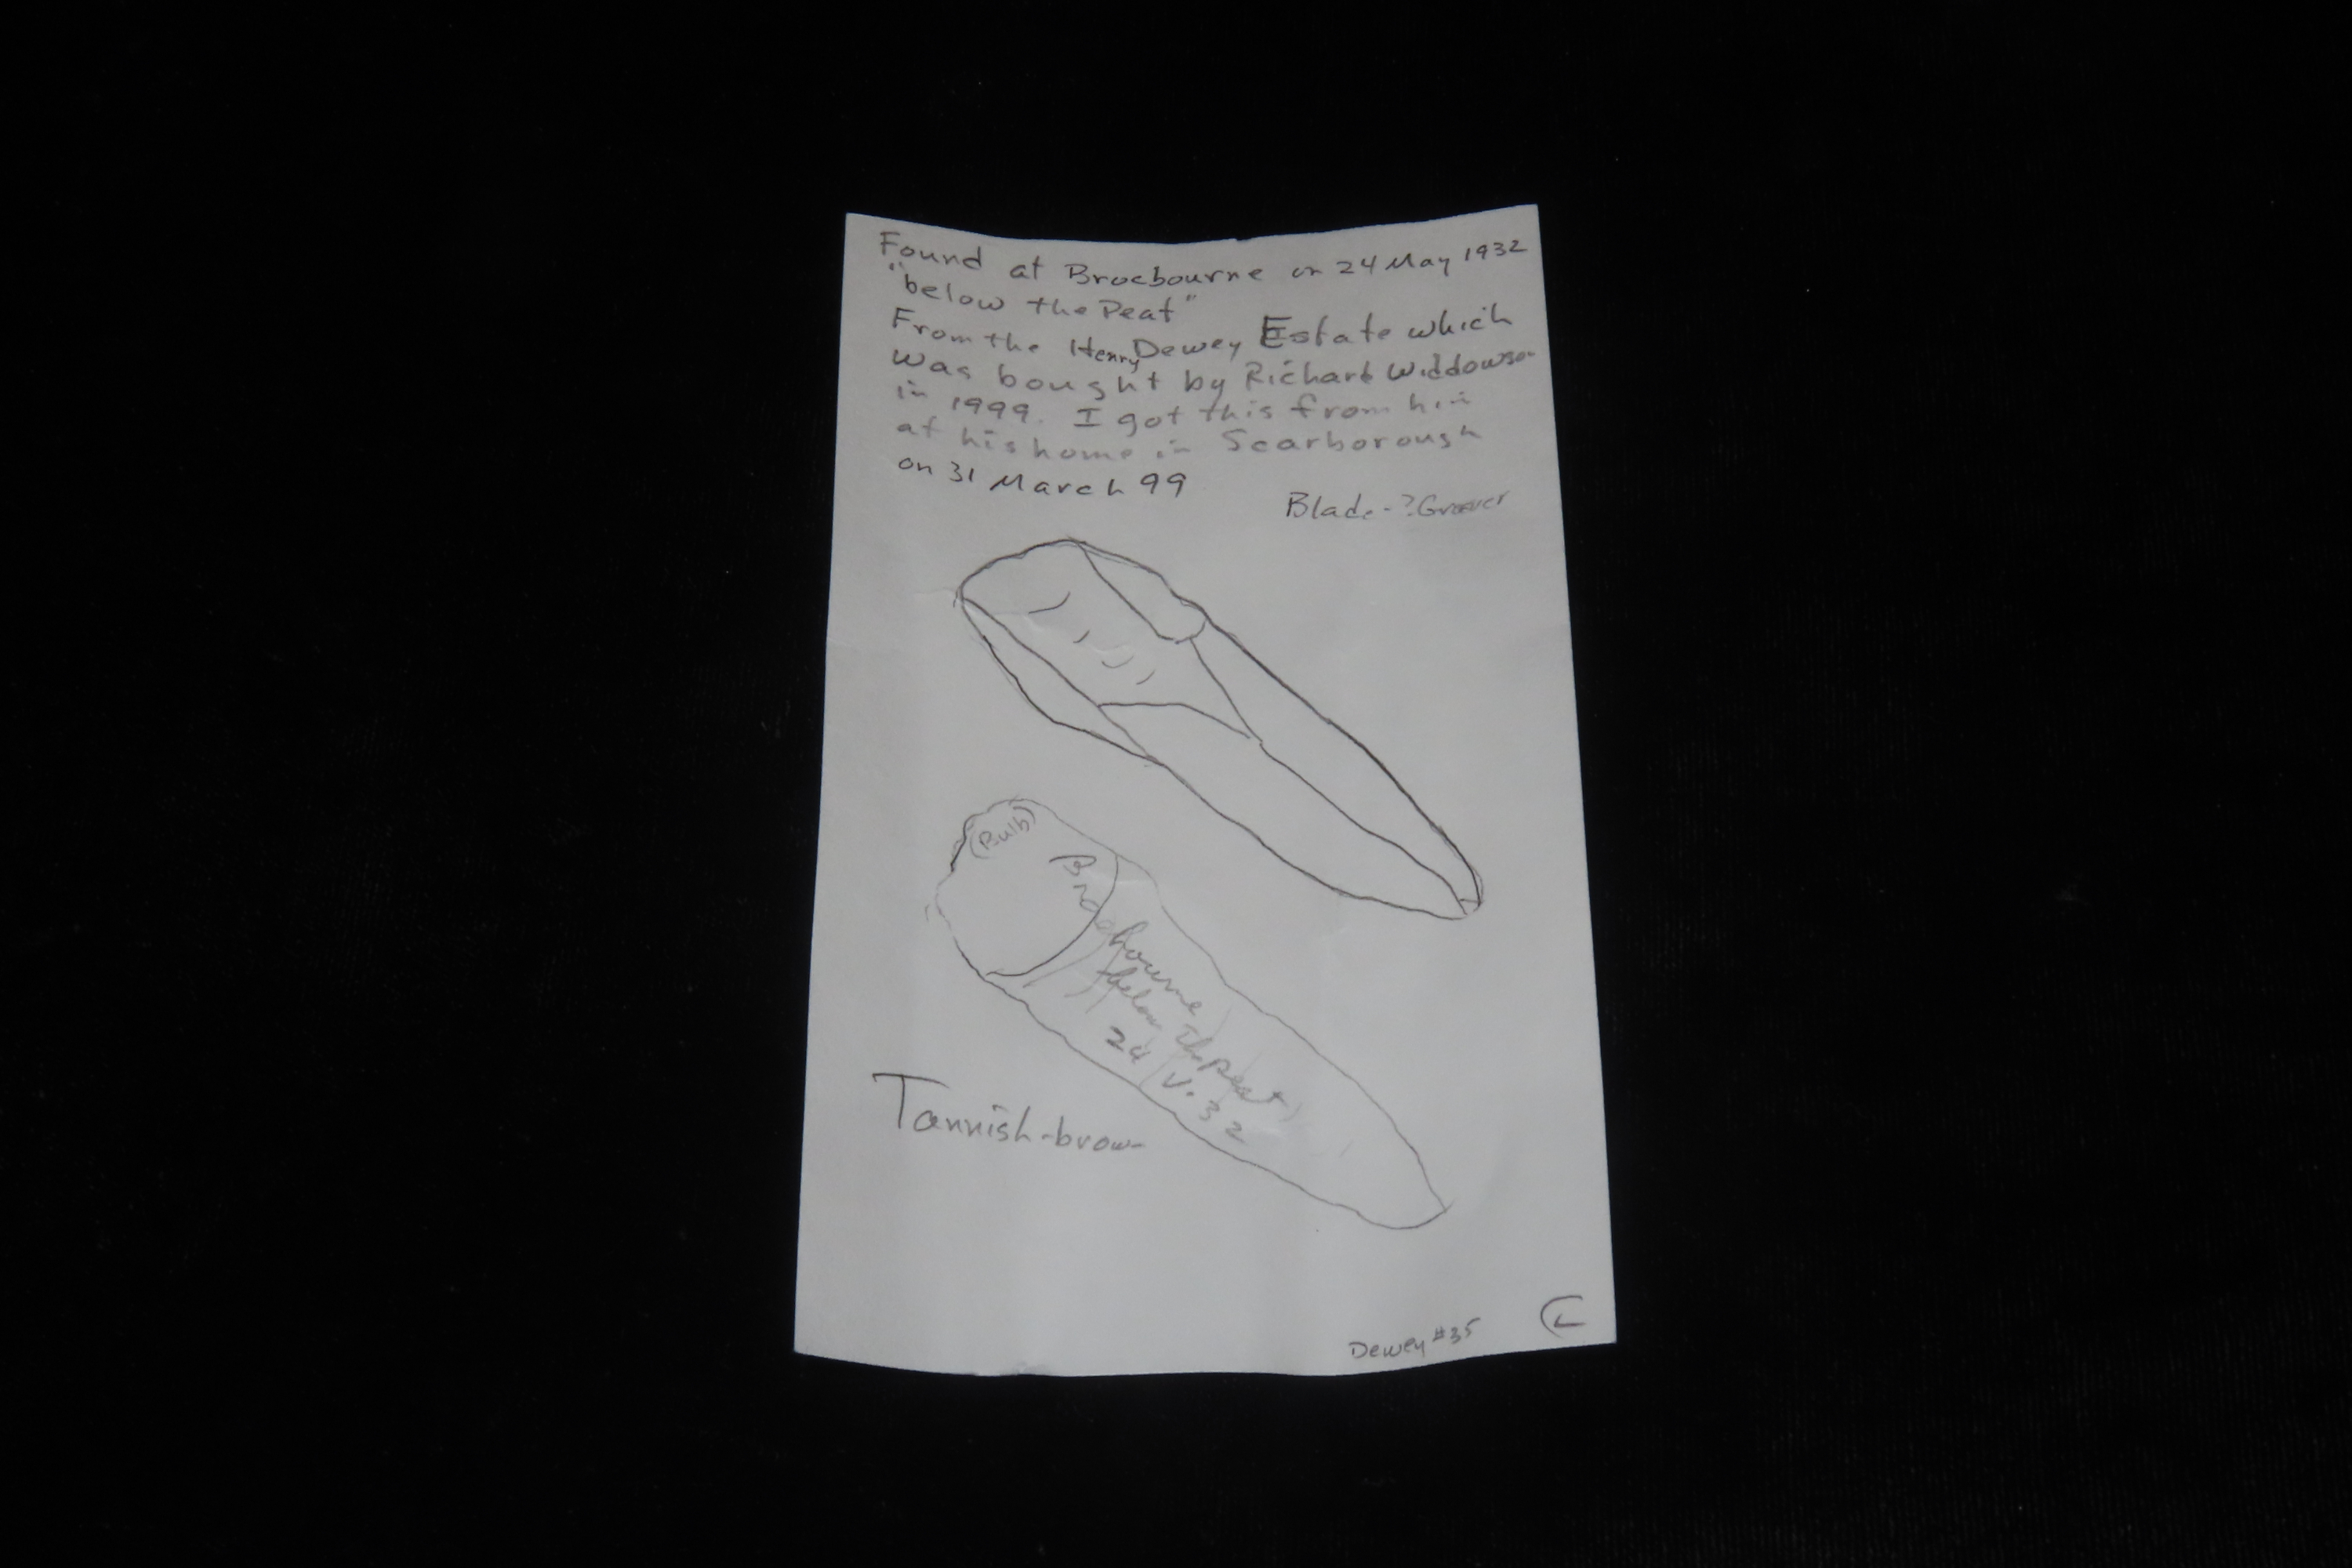 Found at Brocbourne on 24 May 1932
"below the Peat"
From the Henry Dewey Estate which
was bought by Richard Widdowson
in 1999. I got this from him
at his home in Scarborough
on 31 March 99
Blade - ? Graver
(Bulb)
Brocbourne
(below the peat)
24 V. 32
Tannish-brown
Dewey #35